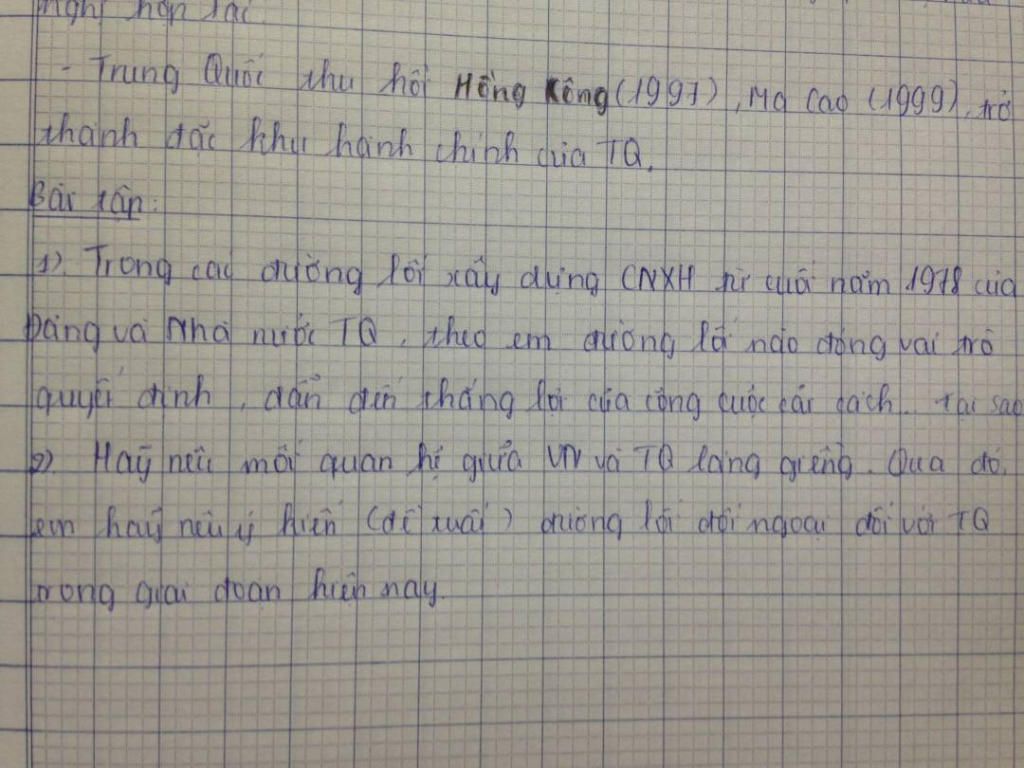 nghị hợp tác
- Trung Quốc thu hồi Hồng Kông (1997), Ma Cao (1999), trở
thành đặc khu hành chính của TQ.
Bài tập:
1) Trong các đường lối xây dựng CNXH từ cuối năm 1978 của
Đảng và Nhà nước TQ, theo em đường lối nào đóng vai trò
quyết định, dẫn đến thắng lợi của công cuộc cải cách. Tại sao
2) Hãy nêu mối quan hệ giữa VN và TQ láng giềng. Qua đó,
em hãy nêu ý kiến (đề xuất) đường lối đối ngoại đối với TQ
trong giai đoạn hiện nay.